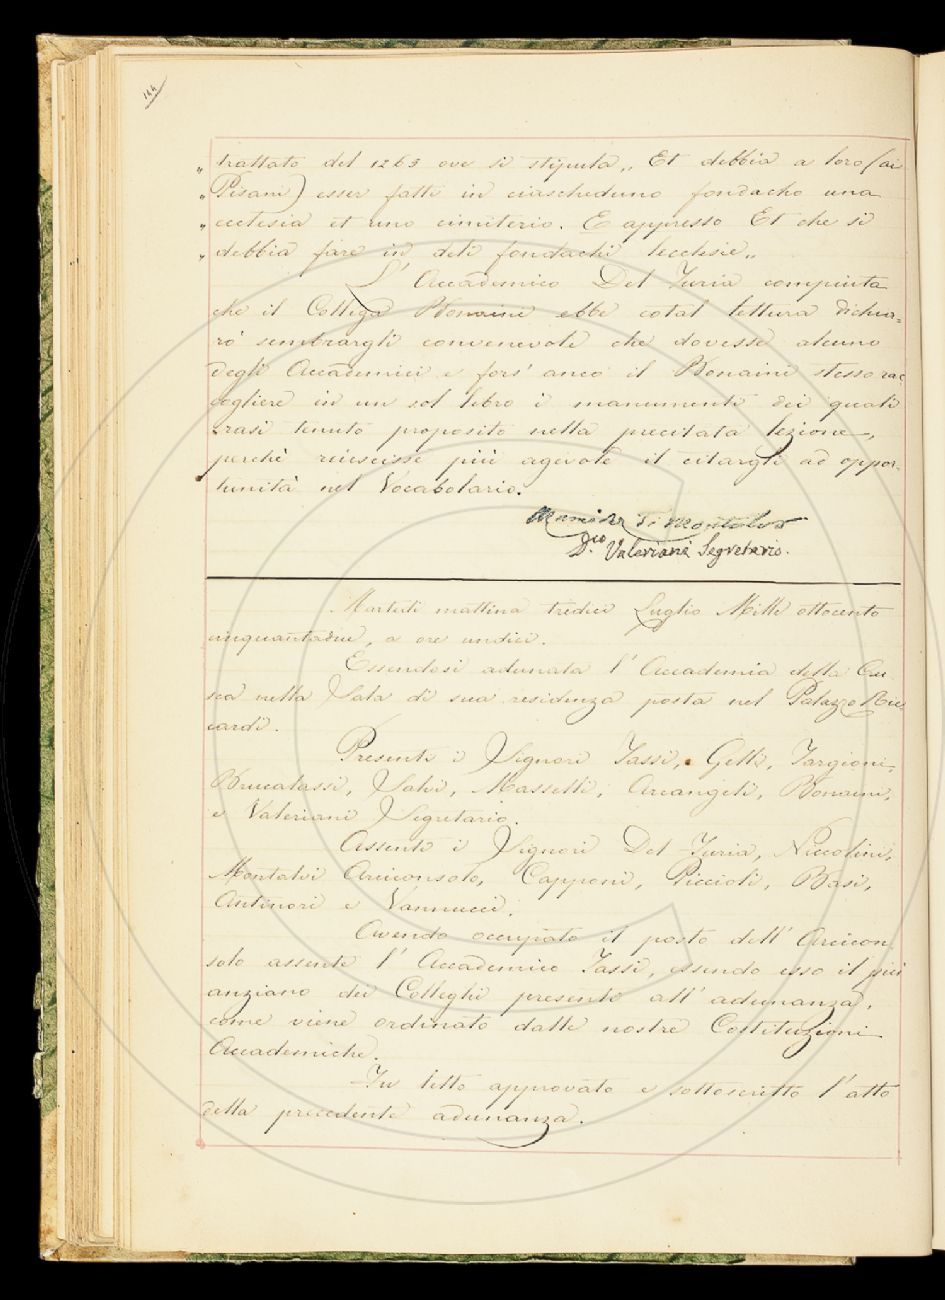 144
„ trattato del 1265 ove si stipula „ Et debbia a loro (ai
„ Pisani) esser fatti in ciascheduno fondacho una
„ ecclesia et uno cimiterio. E appresso Et che si
„ debbia fare in deti fondachi lecclesie „
L' Accademico Del Furia compiuta
che il Collega Bonaini ebbe cotal lettura dichia=
rò sembrargli convenevole che dovesse alcuno
degli Accademici e fors' anco il Bonaini stesso rac=
cogliere in un sol libro i manumenti dei quali
erasi tenuto proposito nella precitata lezione,
perchè riuscisse più agevole il citargli ad oppor=
tunità nel Vocabolario.
Montalvo
Valeriani Segretario.
Martedi mattina tredici Luglio Mille ottocento
cinquantadue, a ore undici.
Essendosi adunata l' Accademia della Cru
sca nella Sala di sua residenza posta nel Palazzo Ric=
cardi.
Presenti i Signori Tassi, Gelli, Targioni,
Brucalassi, Salvi, Masselli, Arcangeli, Bonaini,
e Valeriani Segretario.
Assenti i Signori Del Furia, Niccolini,
Montalvi Arciconsolo, Capponi, Piccioli, Basi,
Antinori e Vannucci.
Avendo occupato il posto dell' Arcicon
solo assente l' Accademico Tassi, essendo esso il più
anziano dei Colleghi presenti all' adunanza,
come viene ordinato dalle nostre Costituzioni
Accademiche.
Fu letto approvato e sottoscritto l' atto
della precedente adunanza.